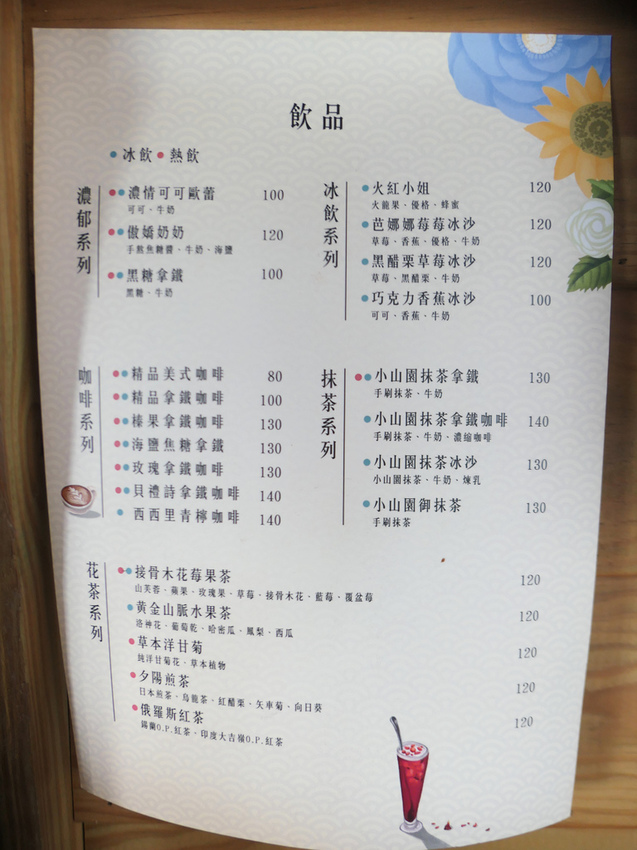 飲品
冰飲 熱飲
濃郁系列
濃情可可歐蕾 100
可可、牛奶
傲嬌奶奶 120
手熬焦糖醬、牛奶、海鹽
黑糖拿鐵 100
黑糖、牛奶
冰飲系列
火紅小姐 120
火龍果、優格、蜂蜜
芭娜娜莓莓冰沙 120
草莓、香蕉、優格、牛奶
黑醋栗草莓冰沙 120
草莓、黑醋栗、牛奶
巧克力香蕉冰沙 100
可可、香蕉、牛奶
咖啡系列
精品美式咖啡 80
精品拿鐵咖啡 100
榛果拿鐵咖啡 130
海鹽焦糖拿鐵 130
玫瑰拿鐵咖啡 130
貝禮詩拿鐵咖啡 140
西西里青檸咖啡 140
抹茶系列
小山園抹茶拿鐵 130
手刷抹茶、牛奶
小山園抹茶拿鐵咖啡 140
手刷抹茶、牛奶、濃縮咖啡
小山園抹茶冰沙 130
小山園抹茶、牛奶、煉乳
小山園御抹茶 130
手刷抹茶
花茶系列
接骨木花莓果茶 120
山芙蓉、蘋果、玫瑰果、草莓、接骨木花、藍莓、覆盆莓
黃金山脈水果茶 120
洛神花、葡萄乾、哈密瓜、鳳梨、西瓜
草本洋甘菊 120
純洋甘菊花、草本植物
夕陽煎茶 120
日本煎茶、烏龍茶、紅醋栗、矢車菊、向日葵
俄羅斯紅茶 120
錫蘭O.P.紅茶、印度大吉嶺O.P.紅茶